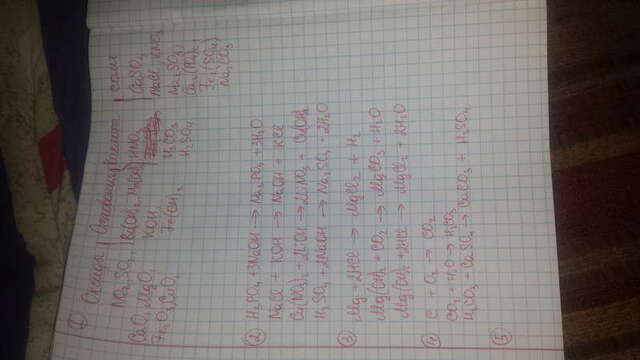 ① Оксиды | Основания | кислоты | соли
NO₂, SO₂, Ba(OH)₂, HNO₃ CaSO₃
CaO, MgO KOH, H₂CO₃ NaCl
Fe₂O₃, CuO Fe(OH)₃ H₂SO₄ Na₂SO₃
Na₂CO₃
② H₃PO₄ + 3NaOH → Na₃PO₄ + 3H₂O
NaCl + KOH → NaOH + KCl
Cu(NO₃)₂ + 2LiOH → 2LiNO₃ + Cu(OH)₂
H₂SO₄ + 2NaOH → Na₂SO₄ + 2H₂O
③ Mg + 2HCl → MgCl₂ + H₂
Mg(OH)₂ + CO₂ → MgCO₃ + H₂O
Mg(OH)₂ + 2HCl → MgCl₂ + 2H₂O
④ C + O₂ → CO₂
CO₂ + H₂O → H₂CO₃
H₂CO₃ + CaSO₄ → CaCO₃ + H₂SO₄
⑤